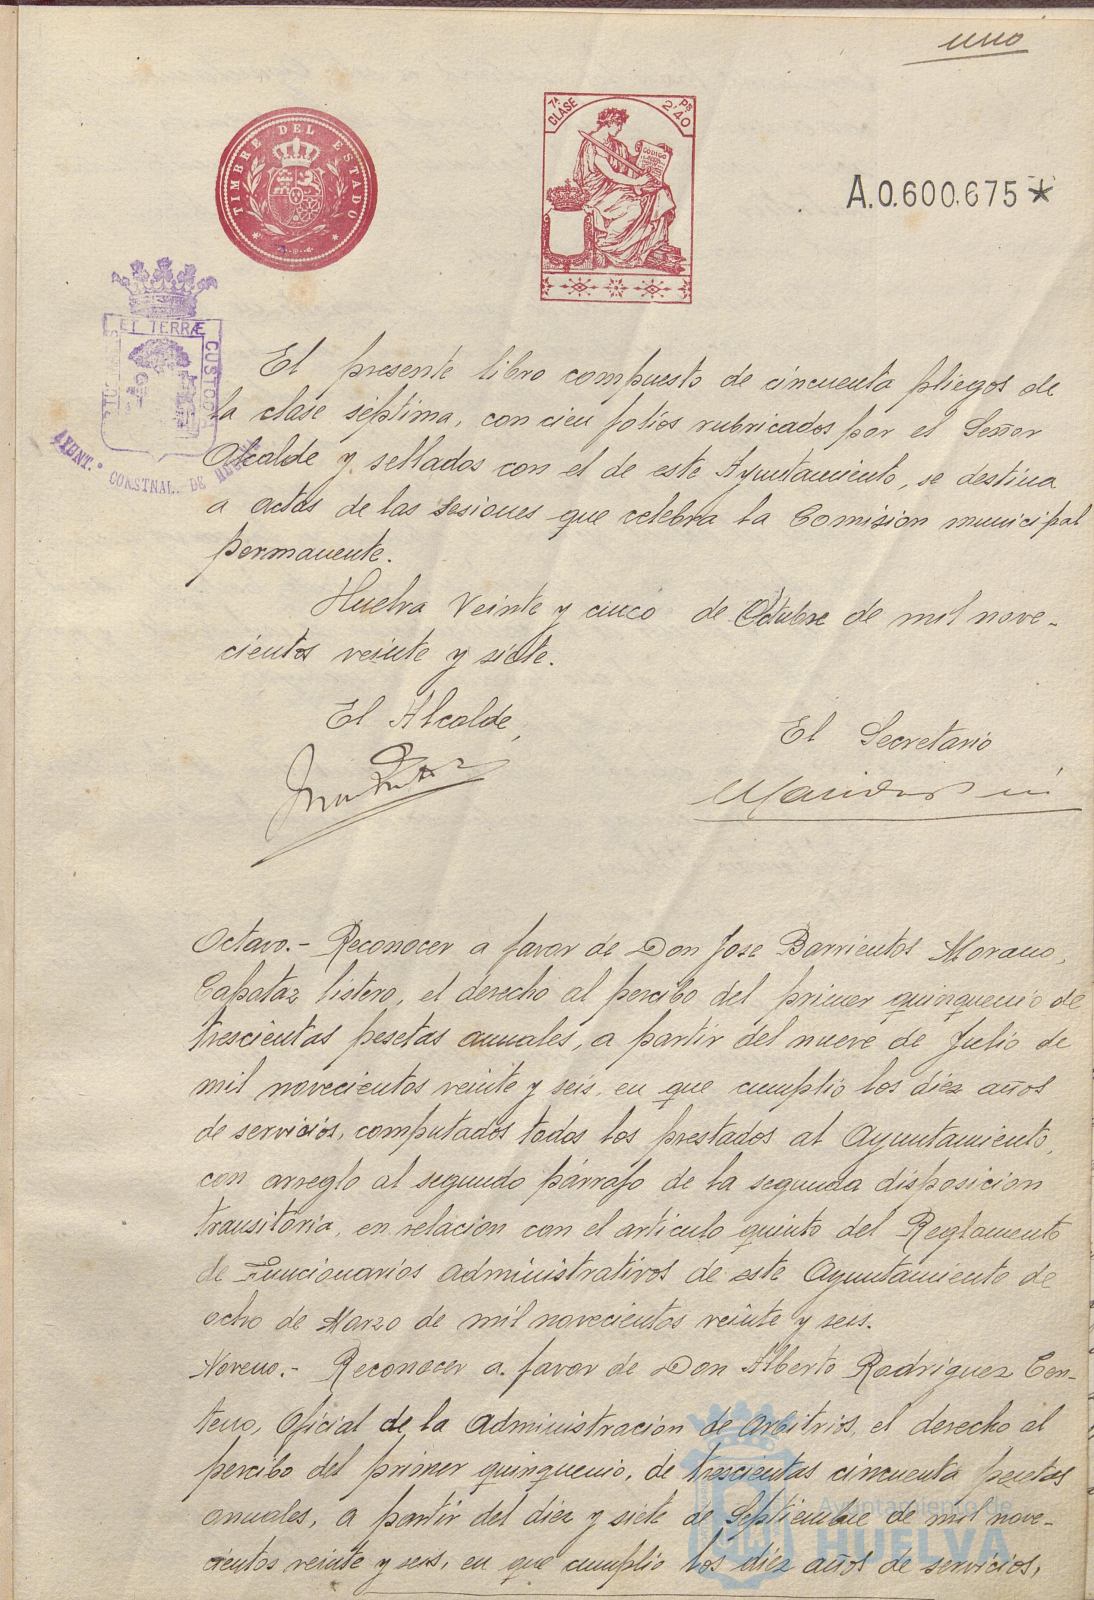 uno
TIMBRE DEL ESTADO
7ª CLASE
Ps 2'40
CODIGO
A.0.600.675*
ET TERRÆ CUSTODIA
AYUNT.º CONSTNAL. DE HUELVA
El presente libro compuesto de cincuenta pliegos de
la clase séptima, con cien folios rubricados por el Señor
Alcalde y sellados con el de este Ayuntamiento, se destina
a actas de las sesiones que celebra la Comision municipal
permanente.
Huelva veinte y cinco de Octubre de mil nove-
cientos veinte y siete.
El Alcalde,
El Secretario
Octavo.- Reconocer a favor de Don Jose Barrientos Morano,
Capataz listero, el derecho al percibo del primer quinquenio de
trescientas pesetas anuales, a partir del nueve de Julio de
mil novecientos veinte y seis, en que cumplio los diez años
de servicios, computados todos los prestados al Ayuntamiento,
con arreglo al segundo párrafo de la segunda disposicion
transitoria, en relacion con el articulo quinto del Reglamento
de Funcionarios administrativos de este Ayuntamiento de
ocho de Marzo de mil novecientos veinte y seis.
Noveno.- Reconocer a favor de Don Alberto Rodriguez Cen-
teno, Oficial de la Administracion de Arbitrios, el derecho al
percibo del primer quinquenio, de trescientas cincuenta pesetas
anuales, a partir del diez y siete de Septiembre de mil nove-
cientos veinte y seis, en que cumplio los diez años de servicios,
Ayuntamiento de
HUELVA